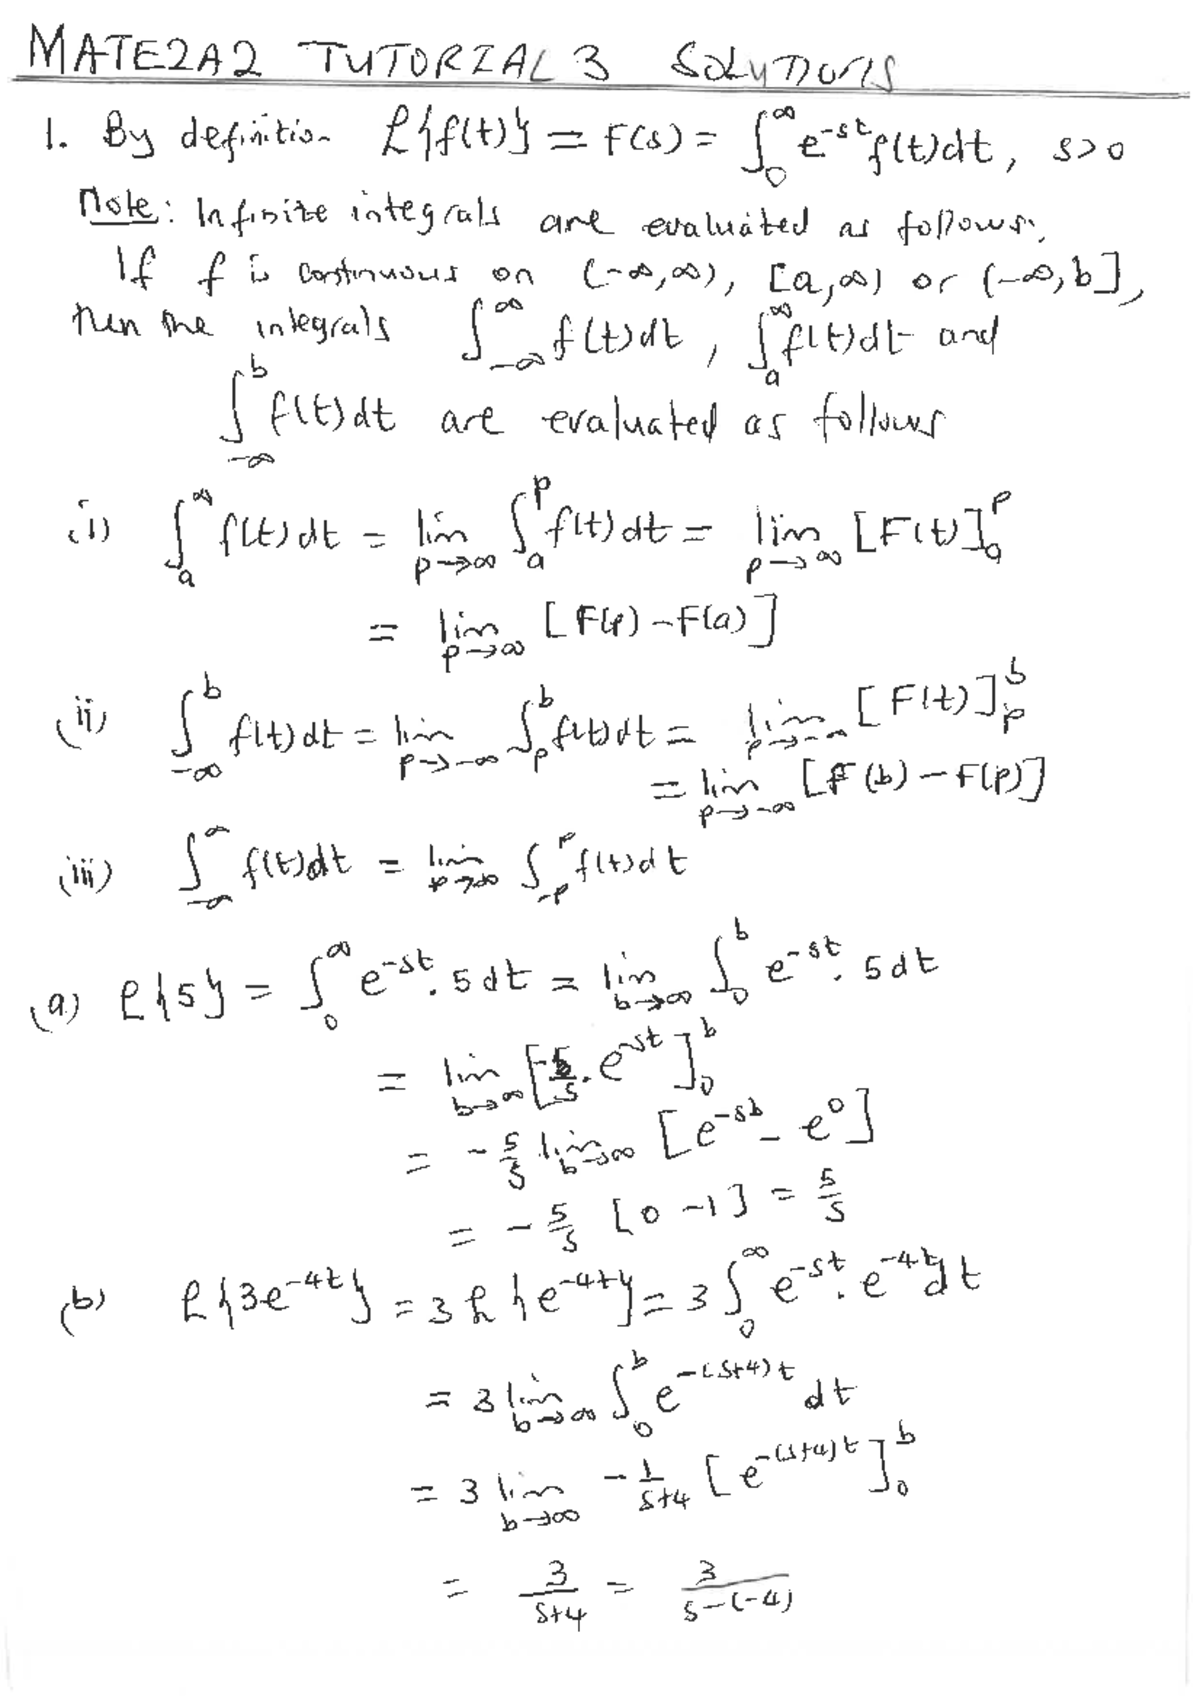 MATE2A2 TUTORIAL 3 SOLUTIONS
1. By definition ℒ{f(t)} = F(s) = ∫₀^∞ e^{-st} f(t)dt, s>0
Note: Infinite integrals are evaluated as follows:
If f is continuous on (-∞,∞), [a,∞) or (-∞,b],
then the integrals ∫_{-∞}^{∞} f(t)dt, ∫_a^∞ f(t)dt and
∫_{-∞}^b f(t)dt are evaluated as follows
(i) ∫_a^∞ f(t)dt = lim_{p→∞} ∫_a^p f(t)dt = lim_{p→∞} [F(t)]_a^p
= lim_{p→∞} [F(p)-F(a)]
(ii) ∫_{-∞}^b f(t)dt = lim_{p→-∞} ∫_p^b f(t)dt = lim_{p→-∞} [F(t)]_p^b
= lim_{p→-∞} [F(b)-F(p)]
(iii) ∫_{-∞}^∞ f(t)dt = lim_{p→∞} ∫_{-p}^p f(t)dt
(a) ℒ{5} = ∫₀^∞ e^{-st}.5dt = lim_{b→∞} ∫₀^b e^{-st}.5dt
= lim_{b→∞} [-5/s.e^{-st}]₀^b
= -5/s lim_{b→∞} [e^{-sb} - e^0]
= -5/s [0-1] = 5/s
(b) ℒ{3e^{-4t}} = 3ℒ{e^{-4t}} = 3∫₀^∞ e^{-st}.e^{-4t}dt
= 3 lim_{b→∞} ∫₀^b e^{-(s+4)t} dt
= 3 lim_{b→∞} -1/(s+4) [e^{-(s+4)t}]₀^b
= 3/(s+4) = 3/(s-(-4))